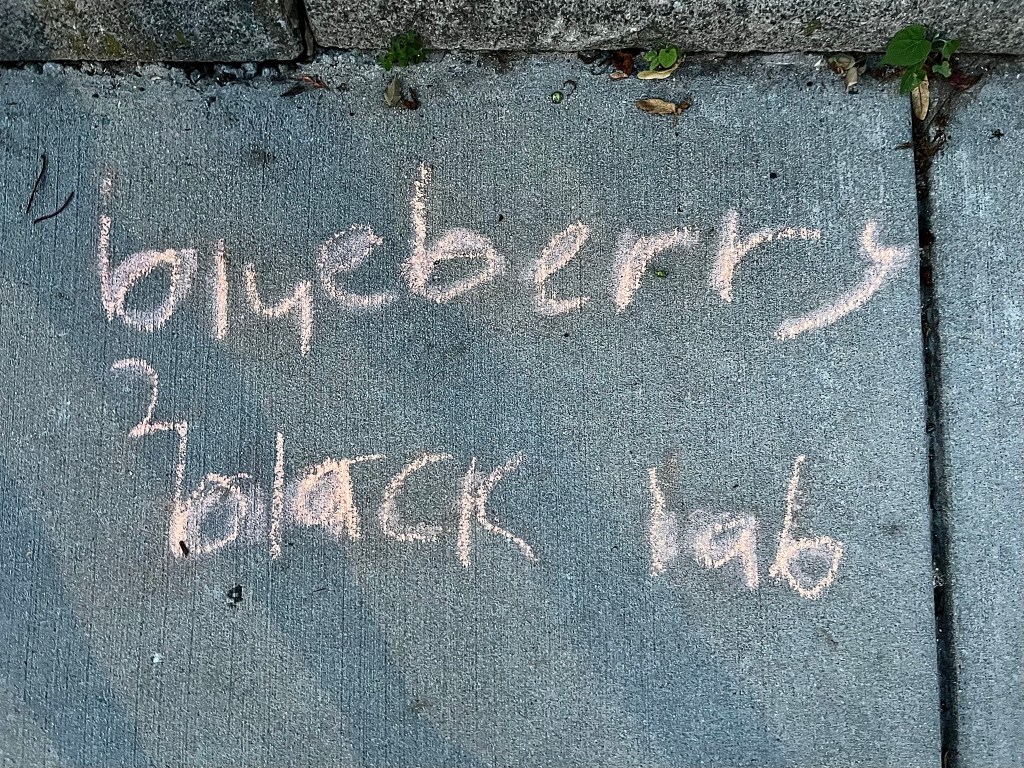 blueberry
2 black lab